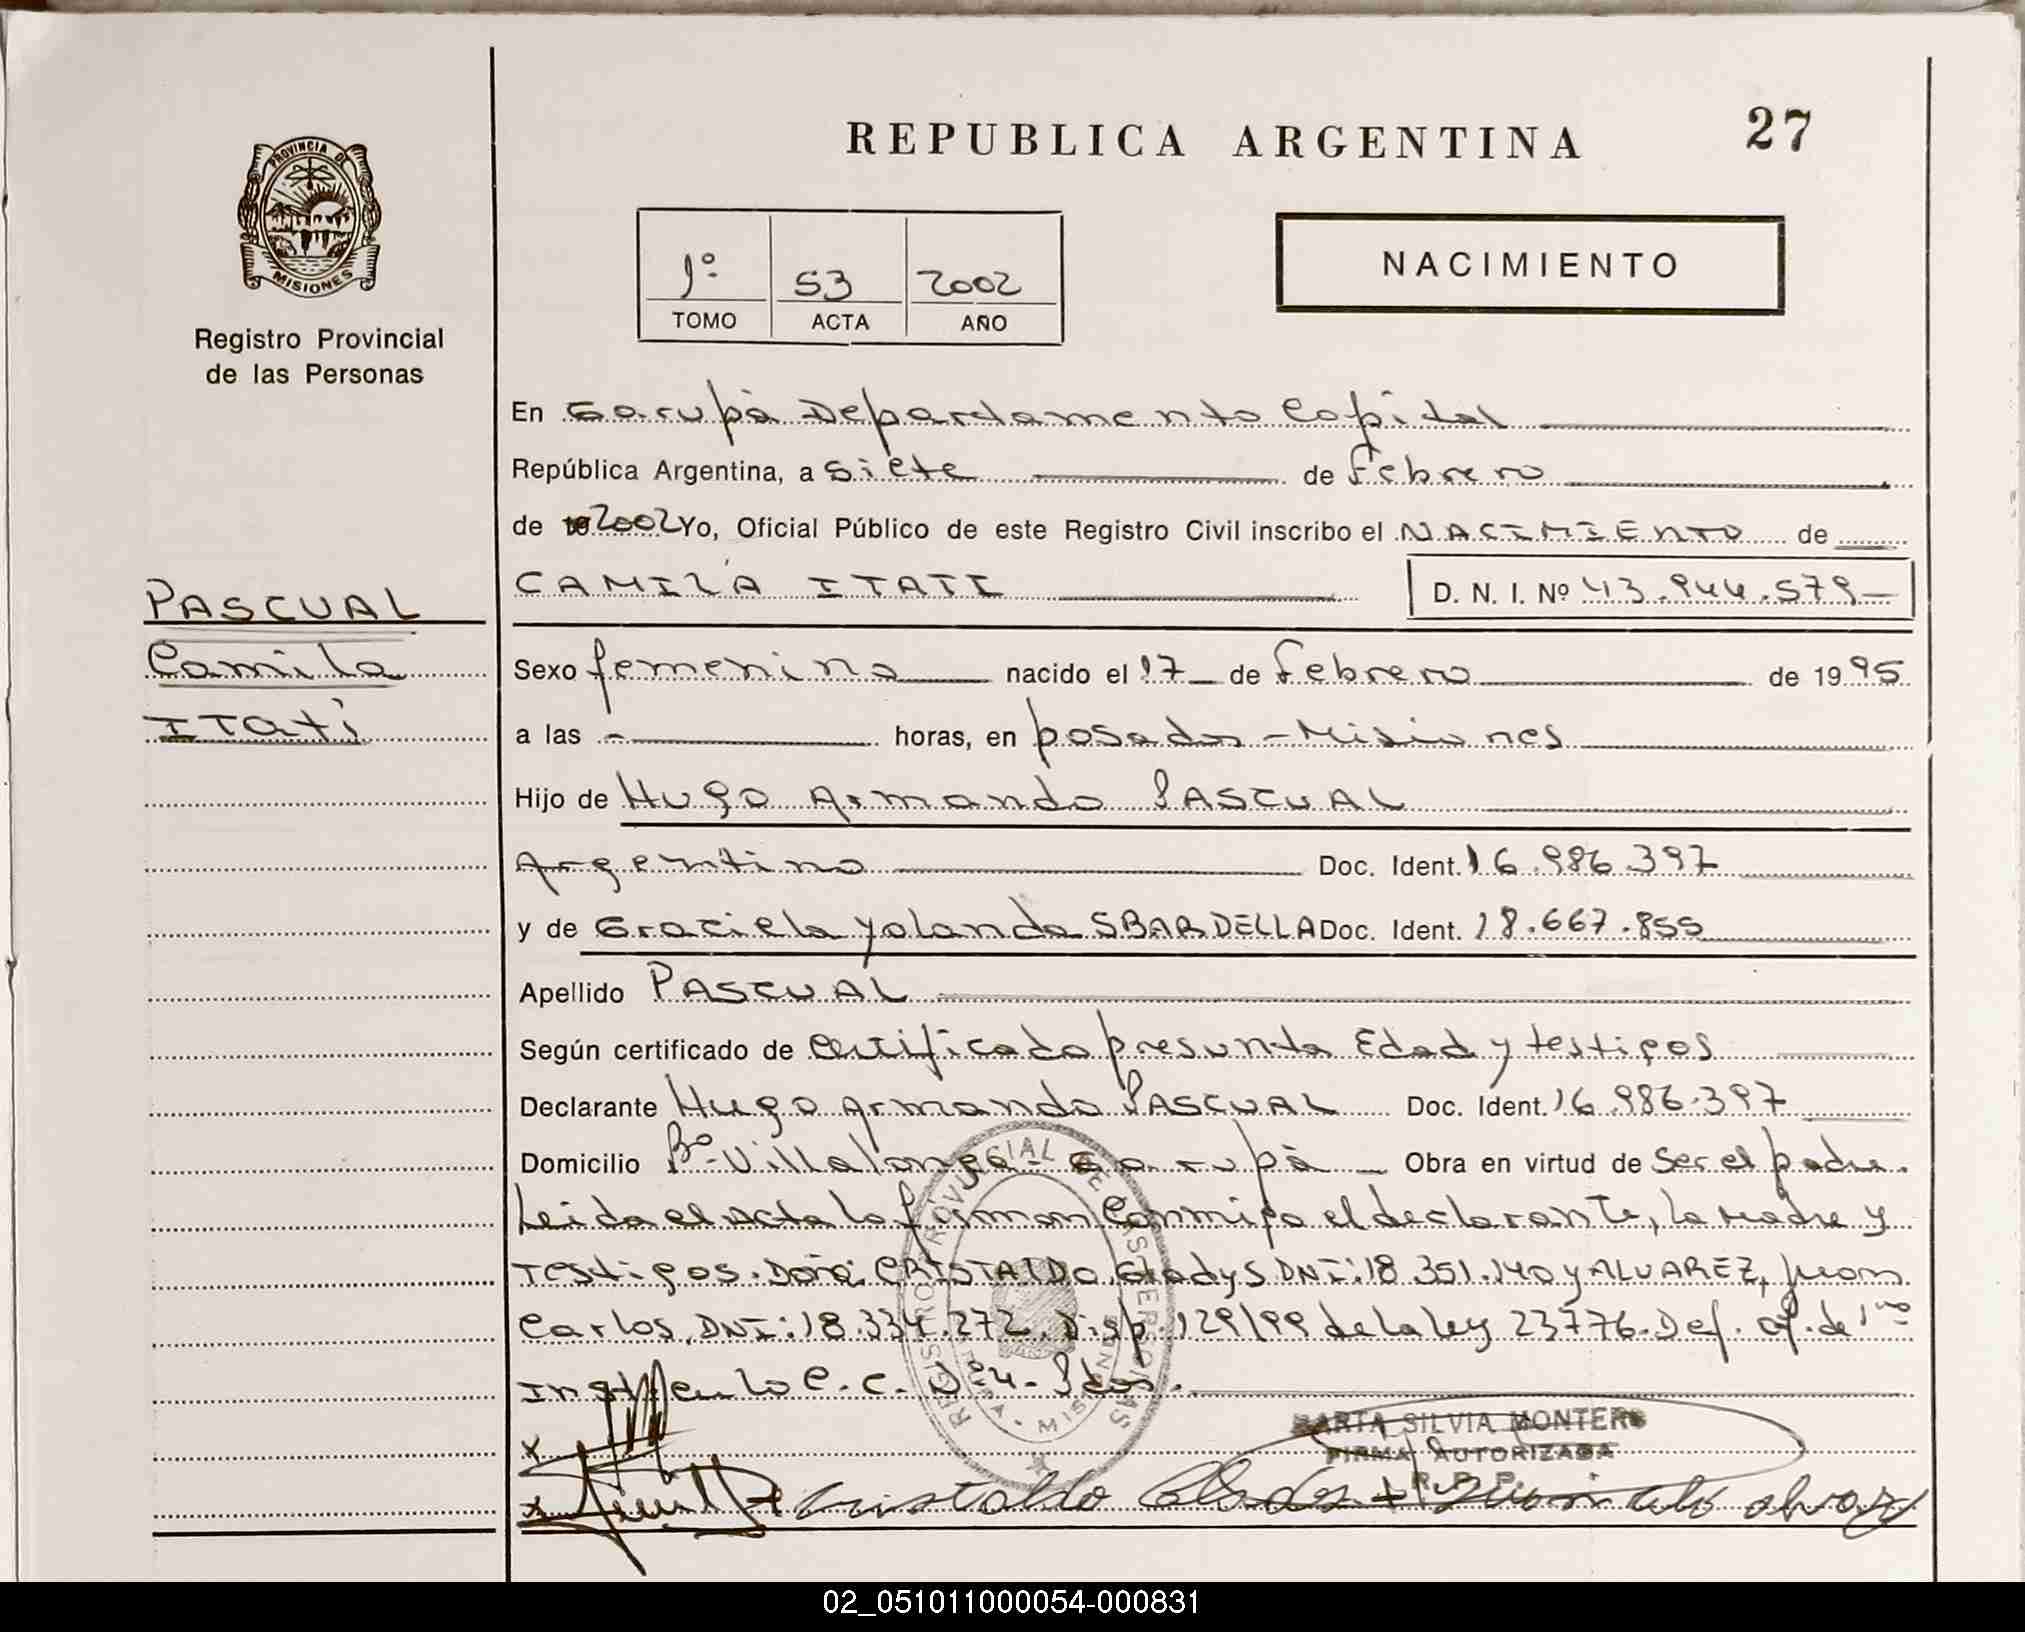 REPUBLICA ARGENTINA
27
PROVINCIA DE
MISIONES
Registro Provincial
de las Personas
1º 53 2002
TOMO ACTA AÑO
NACIMIENTO
En Garupà Departamento Capital
República Argentina, a siete de Febrero
de 2002 Yo, Oficial Público de este Registro Civil inscribo el NACIMIENTO de
CAMILA ITATI D. N. I. Nº 43.944.579
PASCUAL
Camila
ITatí
Sexo femenino nacido el 17 de Febrero de 1995
a las - horas, en posadas - Misiones
Hijo de Hugo Armando PASCUAL
Argentino Doc. Ident. 16.986.397
y de Graciela Yolanda SBARDELLA Doc. Ident. 18.667.855
Apellido PASCUAL
Según certificado de Certificado presunta Edad y testigos
Declarante Hugo Armando PASCUAL Doc. Ident. 16.986.397
Domicilio Bº Villalonga - Garupà Obra en virtud de Ser el padre.
Leida el acta la firman Conmigo el declarante, la Madre y
Testigos. Doña: CRISTALDO, Gladys DNI: 18.351.140 y ALVAREZ, Juan
Carlos, DNI: 18.334.272. Disp. 129/99 de la ley 23776. Def. of. de 1
C.C. Nº 4 - Pdas.
REGISTRO PROVINCIAL DE LAS PERSONAS
MARTA SILVIA MONTERO
FIRMA AUTORIZADA
R. P. P.
x
x Cristaldo Gladys + Juan Carlos Alvarez
02_051011000054-000831